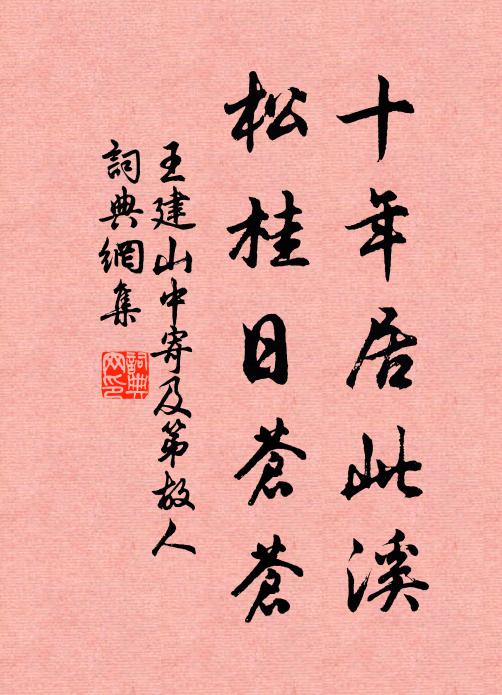 十年居此溪
松桂日蒼蒼
王建山中寄及第故人
詞典網集
詞典網印